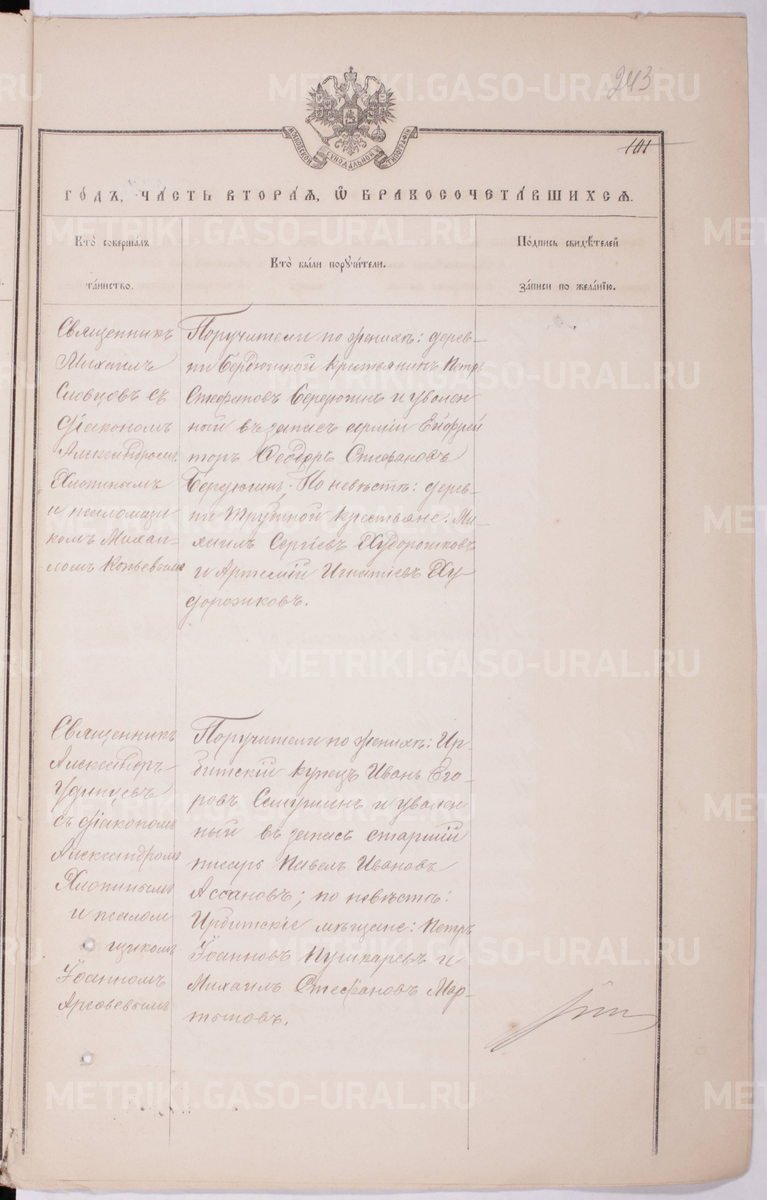 243
101
МОСКОВСКОЙ СѴНОДАЛЬНОЙ ТИПОГРАФІИ
ГО́ДЪ, ЧА́СТЬ ВТОРА́Я, Ѡ҆ БРАКОСОЧЕТА́ВШИХСЯ.
Кто̀ соверша́лъ
та́инство.
Кто̀ бы́ли поручи́тели.
По́дпись свидѣ́телей
за́писи по жела́нію.
Священникъ
Михаилъ
Словцовъ съ
діакономъ
Александромъ
Хлопинымъ
и псаломщи-
комъ Михаи-
ломъ
Поручители по женихѣ: дерев-
ни Бердюгиной крестьянинъ Петръ
Стефановъ Бердюгинъ и уволен-
ный въ запасъ арміи Ефрей
торъ Ѳеодоръ Стефановъ
Бердюгинъ. По невѣстѣ: дерев-
ни крестьяне: Ми-
хаилъ Сергіевъ Худорожковъ
и Артемій Игнатіевъ Ху-
дорожковъ.
Священникъ
Александръ
Удинцевъ
съ діакономъ
Александромъ
Хлопинымъ
и псалом
щикомъ
Іоанномъ
Поручители по женихѣ: Ир-
битскій купецъ Иванъ Его-
ровъ и уволен
ный въ запасъ старшій
писарь Павелъ Ивановъ
Ассановъ; по невѣстѣ:
Ирбитскіе мѣщане: Петръ
Іоанновъ Пушкаревъ и
Михаилъ Стефановъ Мар-
тыновъ.
METRIKI.GASO-URAL.RU